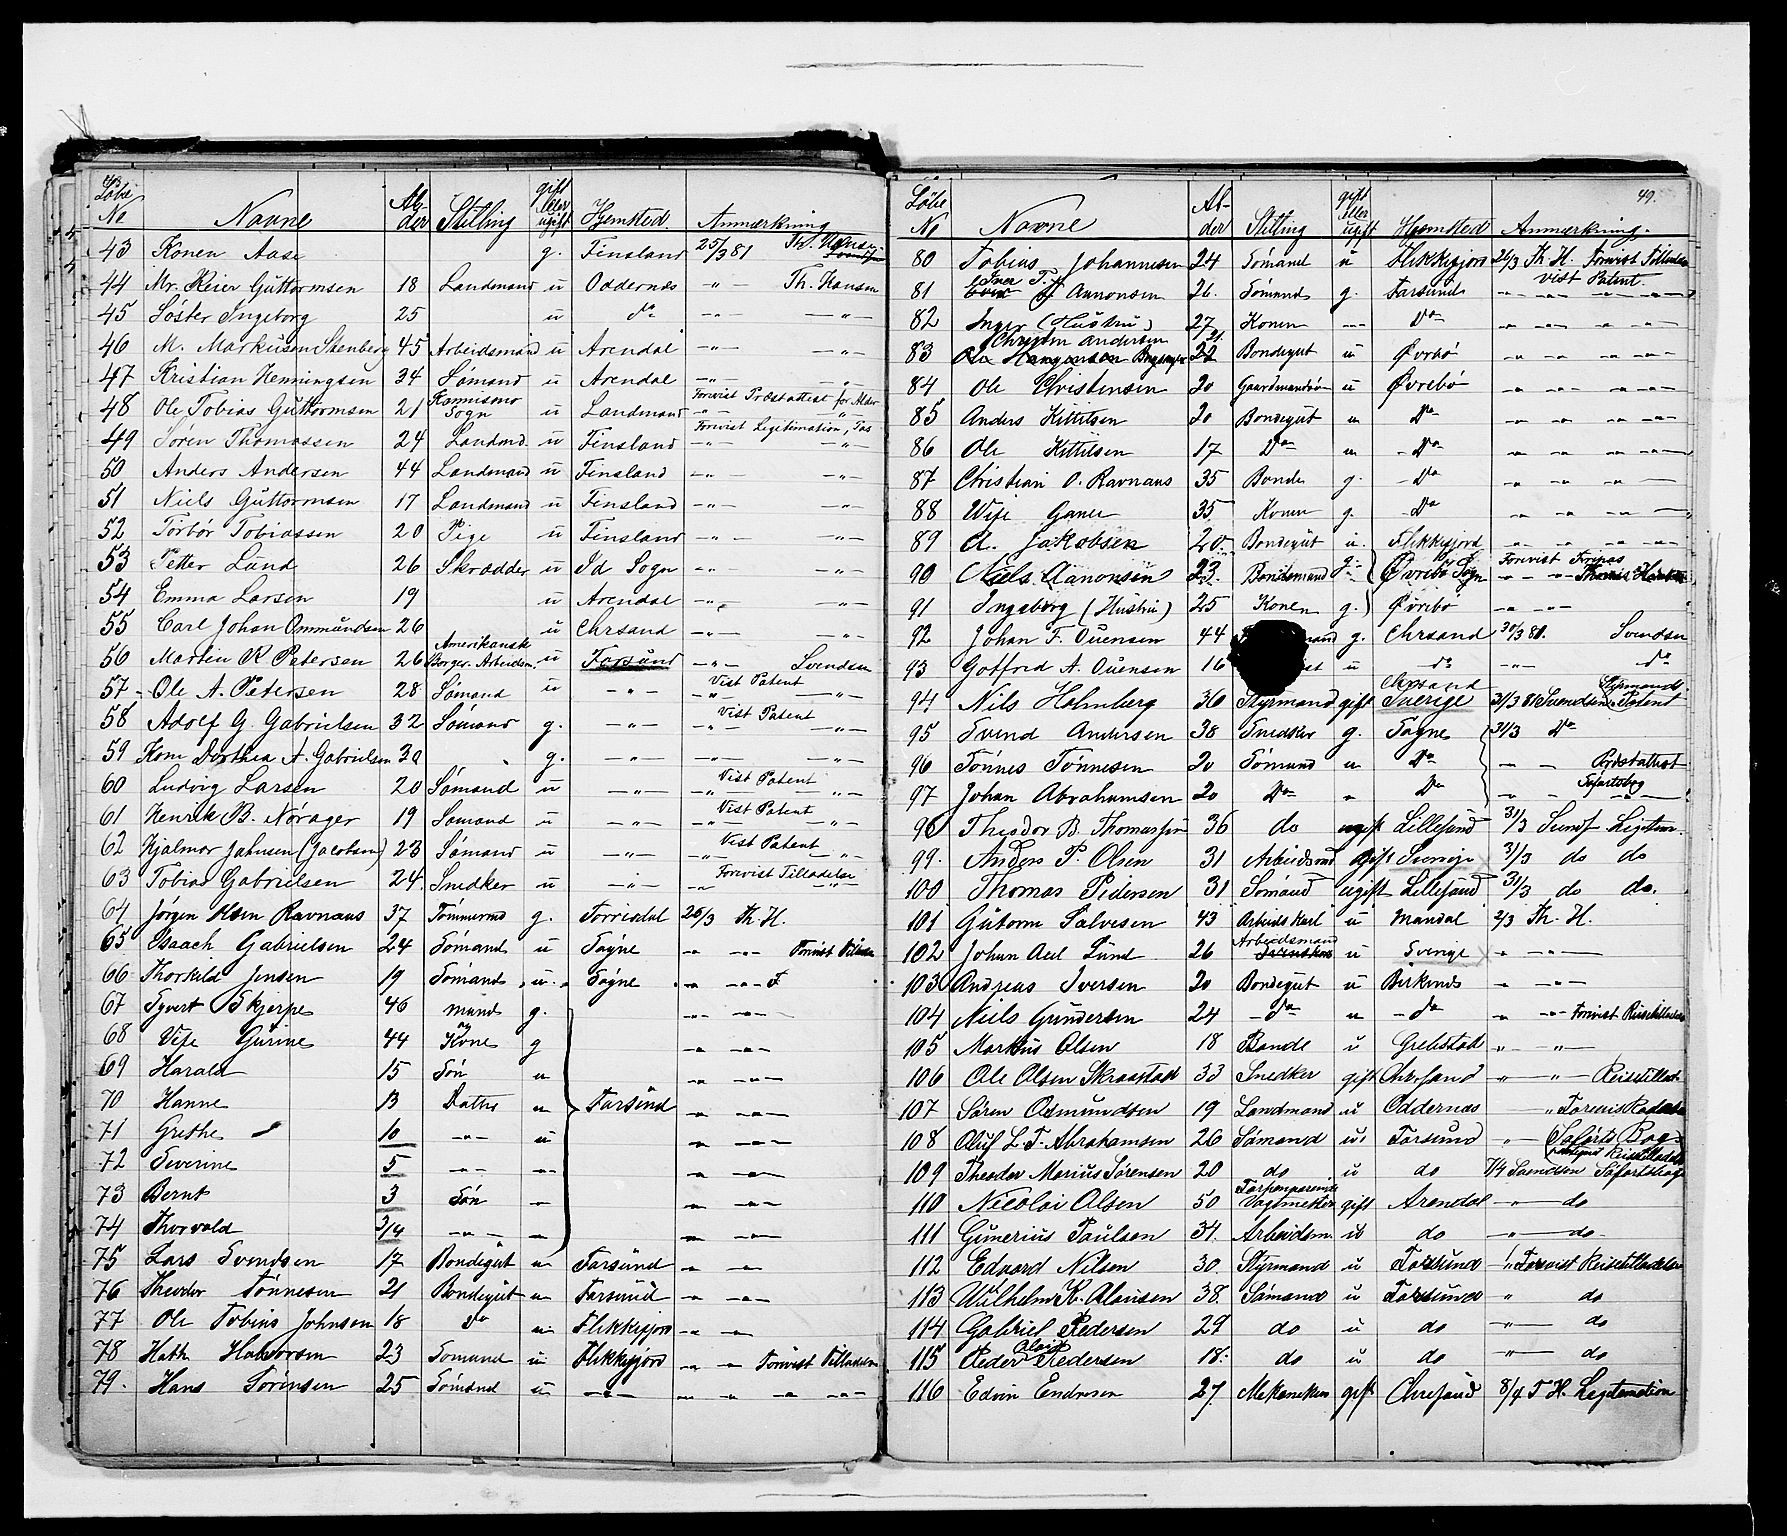 Löbe No Navne Alder Stilling gift eller ugift Hjemsted Anmærkning
43 Konen Aase g. Finsland 25/3 81 Th. Hansen
44 Mr. Reier Guttormsen 18 Landmand u Oddernæs -"- Th. Hansen
45 Söster Ingeborg 25 u do -"- -"-
46 M. Markusen Stenberg 45 Arbeidsmand u Arendal -"- -"-
47 Kristian Henningsen 34 Sömand u Arendal -"- -"-
48 Ole Tobias Guttormsen 21 Sogn u Landmand Forevist Præstattest for Alder -"- -"-
49 Sören Thomassen 24 Landmd. u Finsland Forevist Legitimation, Pas -"- -"-
50 Anders Andersen 44 Landmand u Finsland -"- -"-
51 Niels Guttormsen 17 Landmand u Finsland -"- -"-
52 Torbör Tobiassen 20 Pige u Finsland -"- -"-
53 Petter Lund 26 Skrædder u Id Sogn -"- -"-
54 Emma Larsen 19 u Arendal -"- -"-
55 Carl Johan Ommundsen 26 u Chrsand -"- -"-
56 Martin R Petersen 26 Amerikansk Borger. Arbeidsm. u Farsund -"- Svendsen
57 Ole A. Petersen 28 Sömand u -"- Vist Patent -"- -"-
58 Adolf G. Gabrielsen 32 Sömand g. -"- Vist Patent -"- -"-
59 Kone Dorthea A. Gabrielsen 30 g. -"- -"- -"-
60 Ludvig Larsen 20 Sömand u -"- Vist Patent -"- -"-
61 Henrik B. Nörager 19 Sömand u -"- Vist Patent -"- -"-
62 Hjalmar Jahnsen (Jacobsen) 23 Sömand u -"- Vist Patent -"- -"-
63 Tobias Gabrielsen 24 Snedker u -"- Forevist Tilladelse -"- -"-
64 Jörgen Olsen Ravnaas 37 Tömmermd g. Torrisdal 26/3 Th. H.
65 Isaach Gabrielsen 24 Sömand u Søgne -"- -"- Forevist Tilladelse
66 Thorkild Jensen 19 Sömand u. Søgne -"- -"- F
67 Syvert Skjerpe 46 Mand g. -"- -"-
68 Vife Gurine 44 Kone g -"- -"-
69 Harald 15 Sön u -"- -"-
70 Hanne 13 Datter u Farsund -"- -"-
71 Grethe 10 -"- u -"- -"-
72 Severine 5 -"- -"- -"- -"-
73 Bernt 3 Sön -"- -"- -"-
74 Thorvald 3/4 -"- -"- -"- -"-
75 Lars Svendsen 17 Bondegut u Farsund -"- -"-
76 Theodor Tönnesen 21 Bondegut u Farsund -"- -"-
77 Ole Tobias Johnsen 18 do u Flekkefjord -"- -"-
78 Halvorsen 23 Sömand u Flekkefjord -"- -"- Forevist Tilladelse
79. Hans Sörensen 25 Sömand u -"- -"- -"- -"- -"-
49.
Löbe No Navne Alder Stilling gift eller ugift Hjemsted Anmærkning.
80 Tobias Johannesen 24 Sömand u Flekkefjord 26/3 Th. H. Forevist Tilladelse
81 T. Aanonsen 26 Sömand g. Farsund Vist Patent. -"- -"- -"-
82 Inger (Hustru) 27 Konen -"- do -"- -"- -"-
83 Christen Andersen 21 22 Bondegut u Øvrebö -"- -"- -"-
84 Ole Christensen 20 Gaardmandssön u Øvrebö -"- -"- -"-
85 Anders Kittilsen 20 Bondegut u do -"- -"- -"-
86 Ole Kittilsen 17 do u do -"- -"- -"-
87 Christian O. Ravnaas 35 Bonde g. do -"- -"- -"-
88 Wife Ganer 35 Konen g. do -"- -"- -"-
89 A. Jakobsen 20 Bondegut u. Flekkefjord -"- -"- -"-
90 Niels Aanonsen 23 Bondemand g. Øvrebö Sogn Forevist -"- -"-
91 Ingeborg (Hustru) 25 Konen g. Øvrebö -"- -"-
92 Johan F. Ouensen 44 g. Chrsand 30/3 81. Svendsen
93 Gotfred A. Ouensen 16 u do -"- do
94 Nils Holmberg 36 Styrmand gift Chrsand Sverige 31/3 81 Svendsen Styrmands Patent
95 Svend Andersen 38 Snedker g. Søgne 31/3 do
96 Tönnes Tönnesen 20 Sömand u do -"- -"- Præstattest
97 Johan Abrahamsen 20 do " do -"- -"- Söfartsbog
98 Theodor B. Thomassen 36 do ugift Lillesand 31/3 Svends Legitim.
99. Anders P. Olsen 31 Arbeidsmd gift Sverige 31/3 do do
100 Thomas Pedersen 31 Sömand ugift Lillesand 31/3 do do.
101 Gutorm Salvesen 43 Arbeids Karl u Mandal 2/3 Th. H.
102 Johan Lund 26 Arbeidsmand u Sverige -"- -"-
103 Andreas Iversen 20 Bondegut u Birkends -"- -"-
104 Niels Gundersen 24 do u do -"- -"- Forevist Reisetilladelse
105 Markus Olsen 18 Bonde u Grebstad -"- -"-
106 Ole Olsen Skraastad 33 Snedker gift Chrsand -"- -"- Reisetillad.
107 Sören Osmundsen 19 Landmand u Oddernæs "
108 Oluf L. T. Abrahamsen 26 Sömand u. Farsund -"- Söfarts Bog
109 Theodor Marius Sörensen 20 do u do 7/4 Svendsen Söfartsbog
110 Nicolai Olsen 50 Vagtmester gift Arendal -"- do
111 Gunerius Paulsen 34. Arbeidsm u do -"- do
112 Edvard Nilsen 30 Styrmand u Farsund Forevist Reisetilladelse
113 Wilhelm K. Aanensen 38. Sömand u Farsund " do
114 Gabriel Pedersen 29 do u do -"- do
115 Peder Pedersen 18. do u do -"- do
116 Edvin Endresen 27. Mekaneker gift Chrsand 8/4 T. H. Legitamation